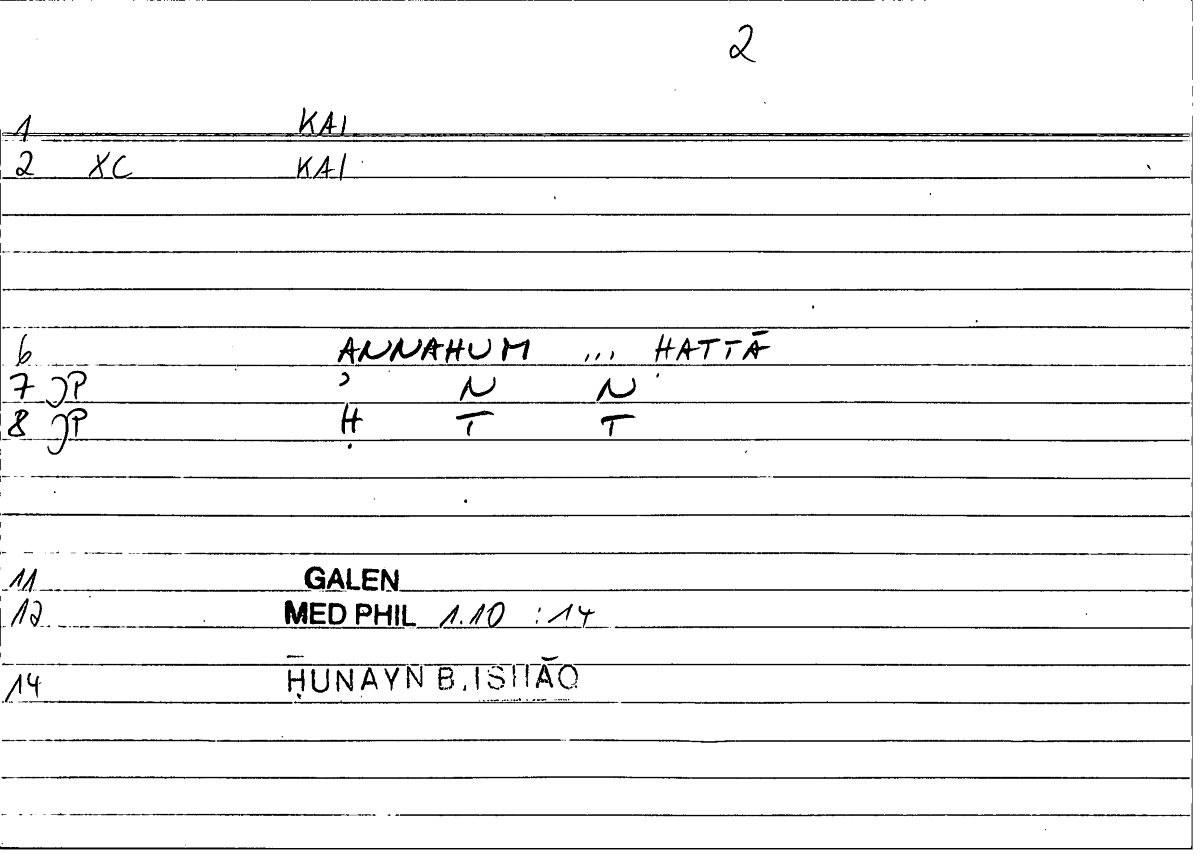 2
1 KAI
2 XC KAI
6 ANNAHUM ... ḤATTĀ
7 JP ʾ N N
8 JP Ḥ T T
11 GALEN
12 MED PHIL 1.10 :14
14 ḤUNAYN B. ISḤĀQ